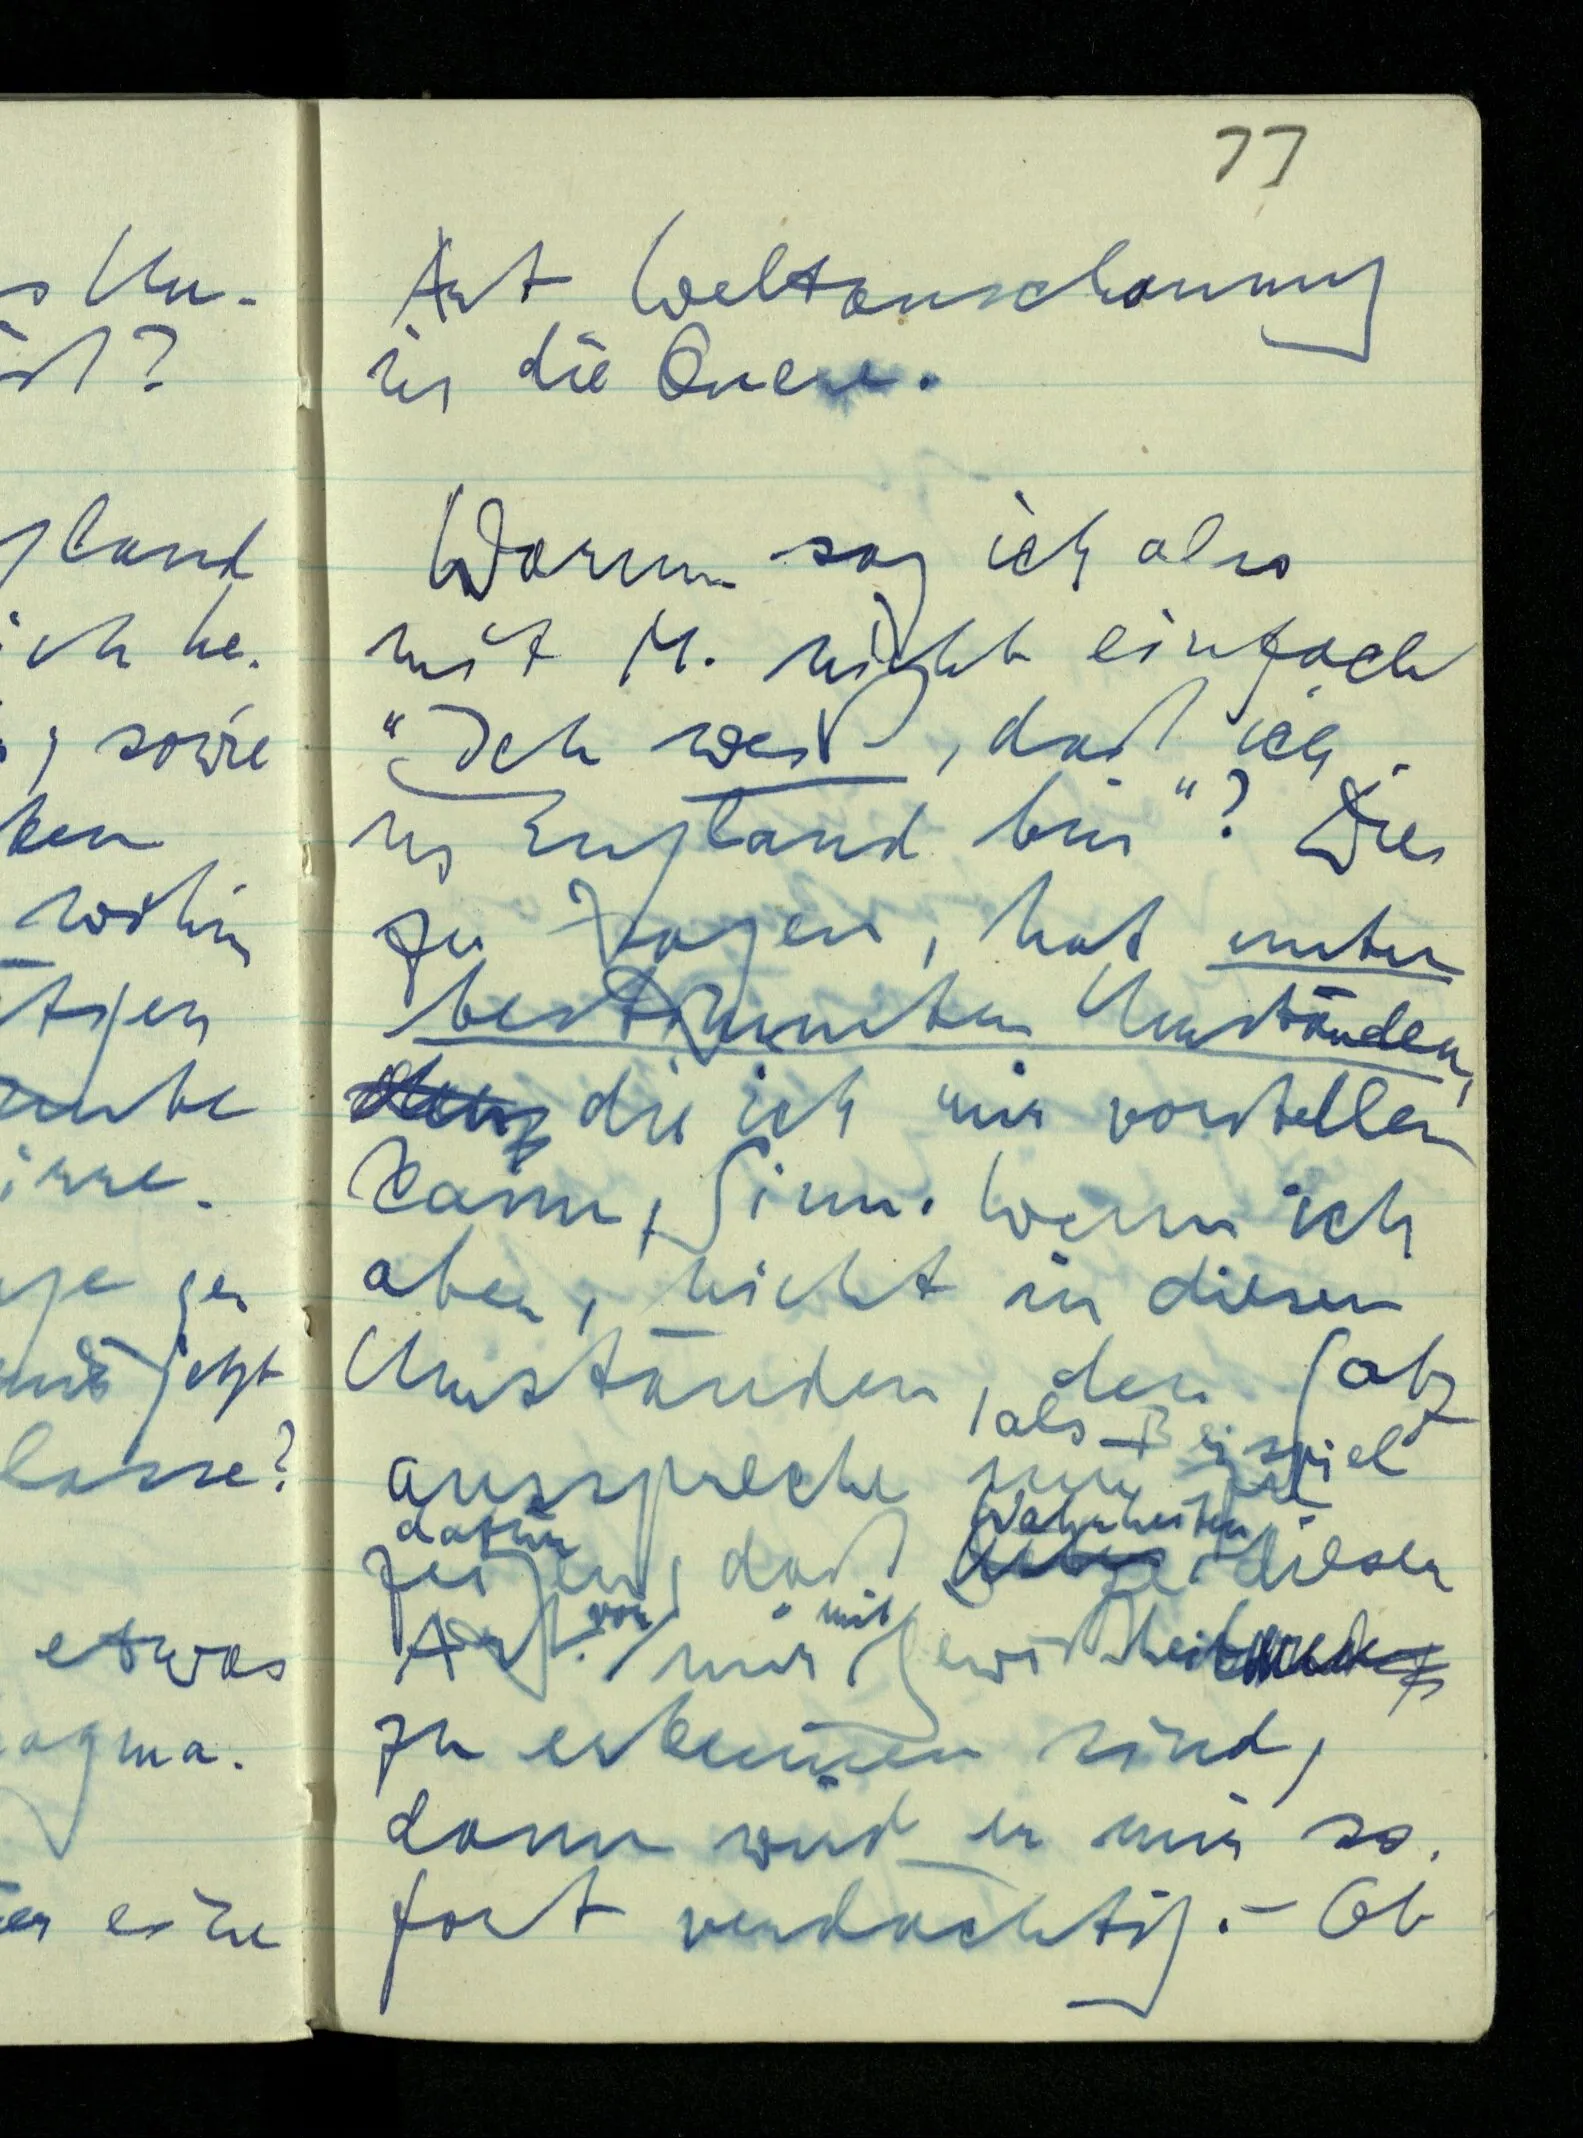 s Un-
ist?
gland
ich be-
, sowie
ben
wohin
tigen
irre.
jetzt
lasse?
etwas
agma.
eine
77
Art Weltanschauung
in die Quere.
Warum sag ich also
mit M. nicht einfach
"Ich weiß, daß ich
in England bin"? Dies
zu sagen, hat unter
bestimmten Umständen,
die ich mir vorstellen
kann, Sinn. Wenn ich
aber, nicht in diesen
Umständen, den Satz
als Beispiel
ausspreche um zu
dafür Wahrheiten
zeigen, daß dieser
von mit
Art mir Gewißheit
zu erkennen sind,
dann wird er mir so-
fort verdächtig. – Ob